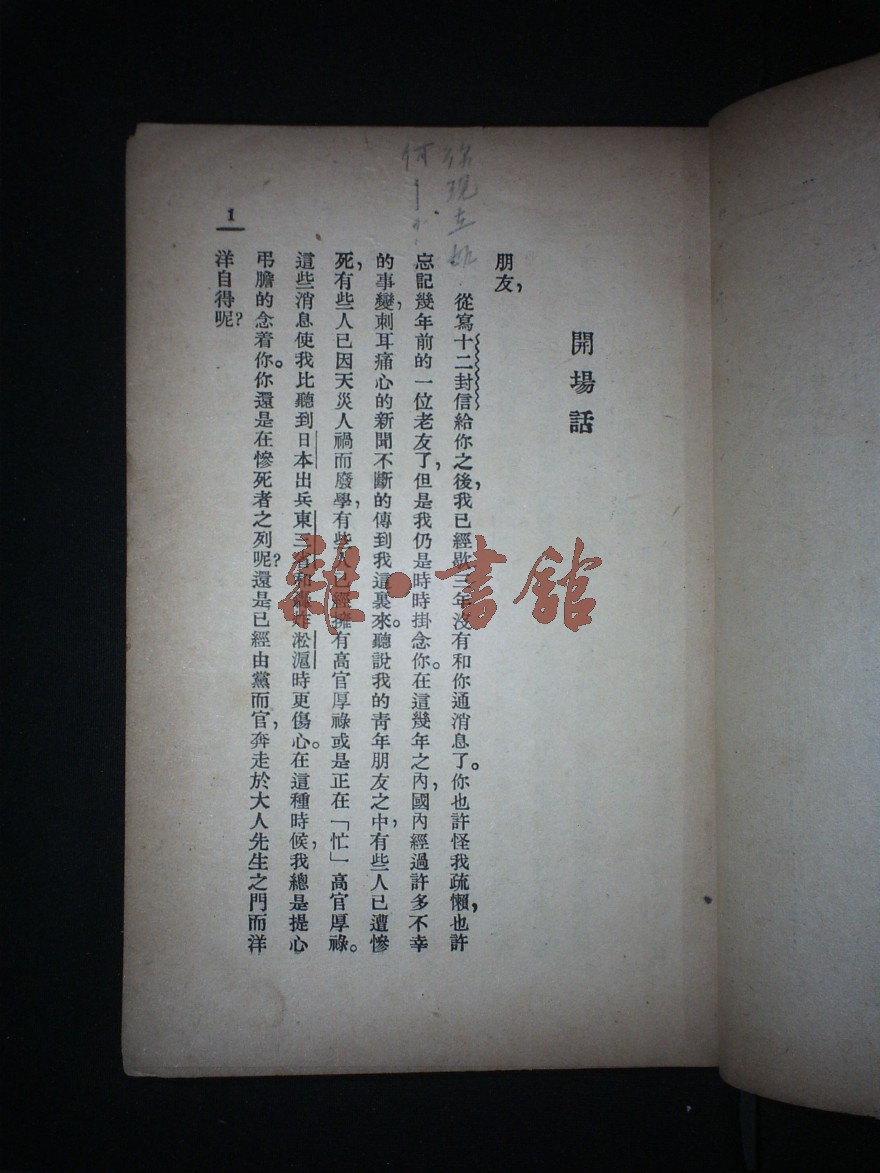 開場話
朋友，
從寫十二封信給你之後，我已經歇三年沒有和你通消息了。你也許怪我疏懶，也許
忘記幾年前的一位老友了，但是我仍是時時掛念你。在這幾年之內，國內經過許多不幸
的事變，刺耳痛心的新聞不斷的傳到我這裏來。聽說我的青年朋友之中，有些人已遭慘
死，有些人已因天災人禍而廢學，有些人已經擁有高官厚祿或是正在「忙」高官厚祿。
這些消息使我比聽到日本出兵東三省和轟炸淞滬時更傷心。在這種時候，我總是提心
弔膽的念着你。你還是在慘死者之列呢？還是已經由黨而官，奔走於大人先生之門而洋
洋自得呢？
1
雜·書館